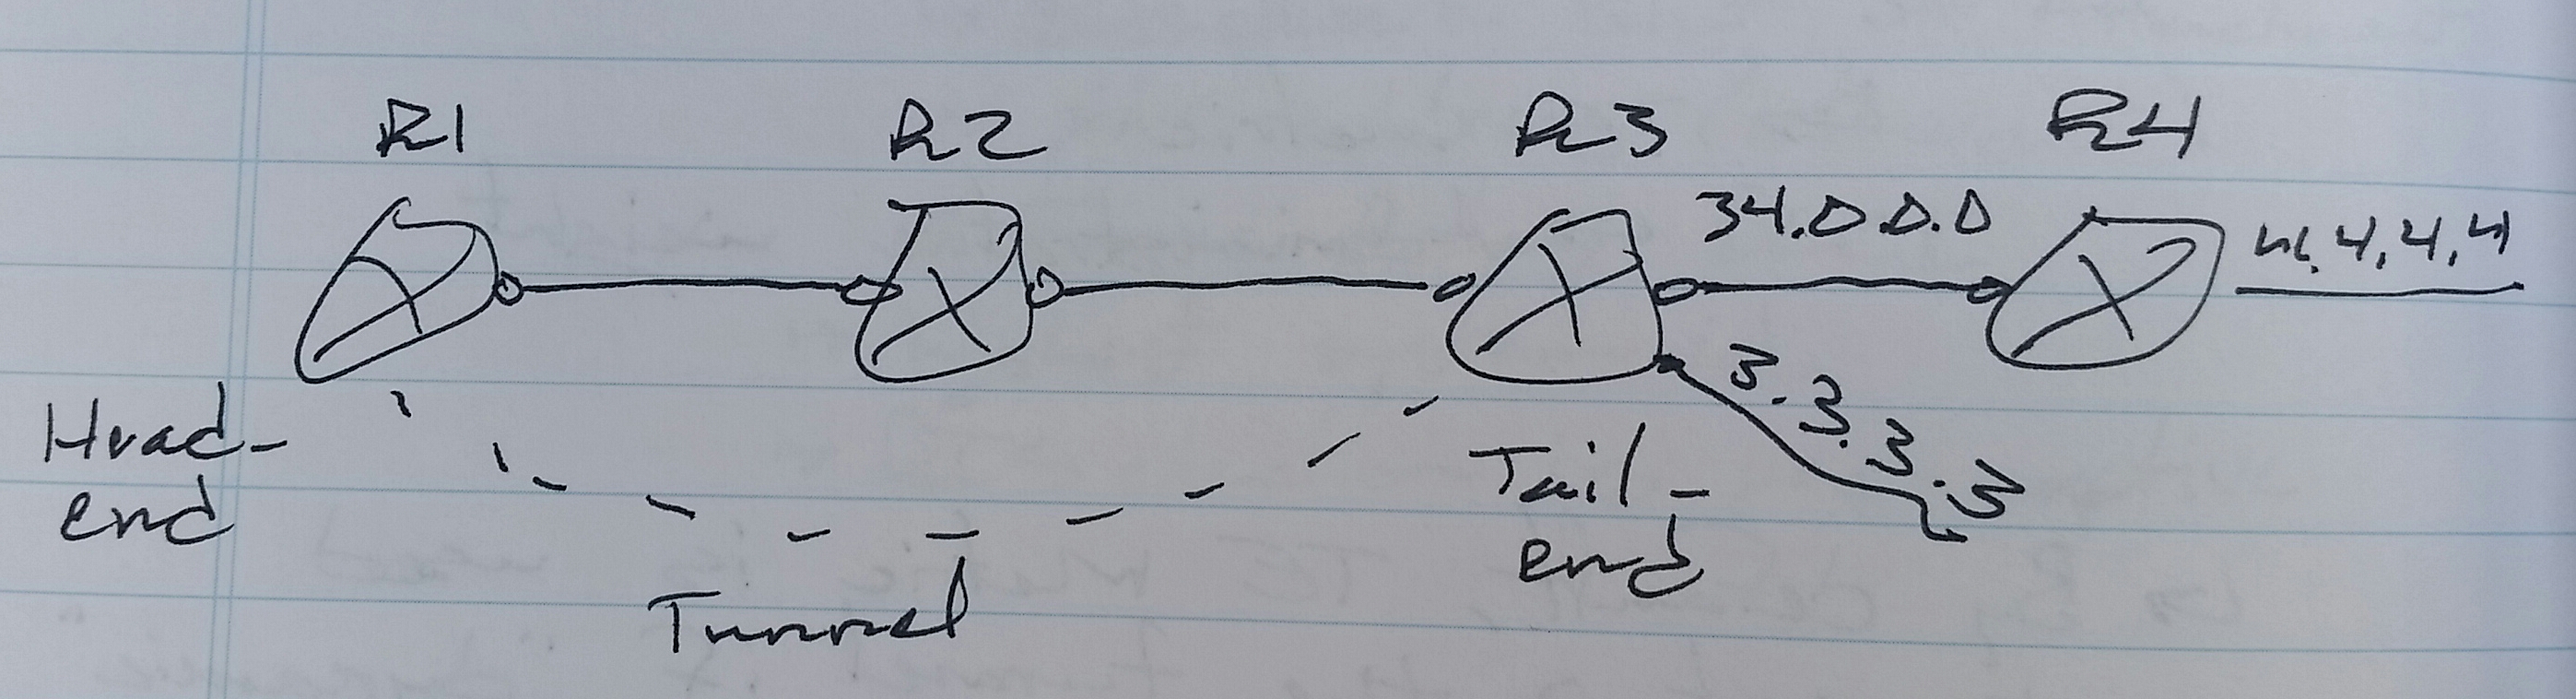 R1
R2
R3
R4
34.0.0.0
4.4.4.4
3.3.3.3
Head-
end
Tail-
end
Tunnel